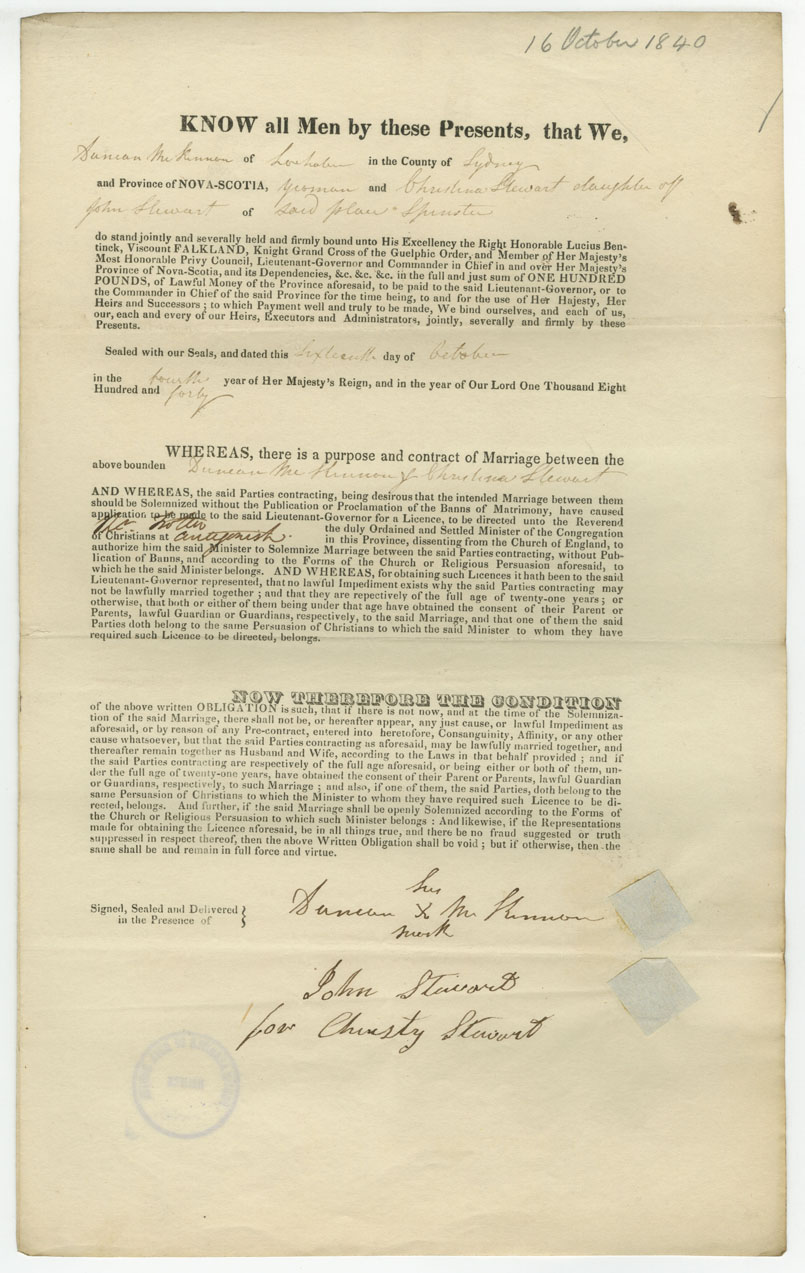 16 October 1840
KNOW all Men by these Presents, that We,
Duncan McKinnon of Lochaber in the County of Sydney
and Province of NOVA-SCOTIA, yeoman and Christina Stewart daughter of
John Stewart of said place Spinster
do stand jointly and severally held and firmly bound unto His Excellency the Right Honorable Lucius Ben-
tinck, Viscount FALKLAND, Knight Grand Cross of the Guelphic Order, and Member of Her Majesty's
Most Honorable Privy Council, Lieutenant-Governor and Commander in Chief in and over Her Majesty's
Province of Nova-Scotia, and its Dependencies, &c. &c. &c. in the full and just sum of ONE HUNDRED
POUNDS, of Lawful Money of the Province aforesaid, to be paid to the said Lieutenant-Governor, or to
the Commander in Chief of the said Province for the time being, to and for the use of Her Hajesty, Her
Heirs and Successors ; to which Payment well and truly to be made, We bind ourselves, and each of us,
our, each and every of our Heirs, Executors and Administrators, jointly, severally and firmly by these
Presents.
Sealed with our Seals, and dated this sixteenth day of October
in the fourth year of Her Majesty's Reign, and in the year of Our Lord One Thousand Eight
Hundred and forty
WHEREAS, there is a purpose and contract of Marriage between the
above bounden Duncan McKinnon & Christina Stewart
AND WHEREAS, the said Parties contracting, being desirous that the intended Marriage between them
should be Solemnized without the Publication or Proclamation of the Banns of Matrimony, have caused
application to be made to the said Lieutenant-Governor for a Licence, to be directed unto the Reverend
Mr. Trotter the duly Ordained and Settled Minister of the Congregation
of Christians at Antigonish. in this Province, dissenting from the Church of England, to
authorize him the said Minister to Solemnize Marriage between the said Parties contracting, without Pub-
lication of Banns, and according to the Forms of the Church or Religious Persuasion aforesaid, to
which he the said Minister belongs. AND WHEREAS, for obtaining such Licences it hath been to the said
Lieutenant-Governor represented, that no lawful Impediment exists why the said Parties contracting may
not be lawfully married together ; and that they are repectively of the full age of twenty-one years ; or
otherwise, that both or either of them being under that age have obtained the consent of their Parent or
Parents, lawful Guardian or Guardians, respectively, to the said Marriage, and that one of them the said
Parties doth belong to the same Persuasion of Christians to which the said Minister to whom they have
required such Licence to be directed, belongs.
NOW THEREFORE THE CONDITION
of the above written OBLIGATION is such, that if there is not now, and at the time of the Solemniza-
tion of the said Marriage, there shall not be, or hereafter appear, any just cause, or lawful Impediment as
aforesaid, or by reason of any Pre-contract, entered into heretofore, Consanguinity, Affinity, or any other
cause whatsoever, but that the said Parties contracting as aforesaid, may be lawfully married together, and
thereafter remain together as Husband and Wife, according to the Laws in that behalf provided ; and if
the said Parties contracting are respectively of the full age aforesaid, or being either or both of them, un-
der the full age of twenty-one years, have obtained the consent of their Parent or Parents, lawful Guardian
or Guardians, respectively, to such Marriage ; and also, if one of them, the said Parties, doth belong to the
same Persuasion of Christians to which the Minister to whom they have required such Licence to be di-
rected, belongs. And further, if the said Marriage shall be openly Solemnized according to the Forms of
the Church or Religious Persuasion to which such Minister belongs : And likewise, if the Representations
made for obtaining the Licence aforesaid, be in all things true, and there be no fraud suggested or truth
suppressed in respect thereof, then the above Written Obligation shall be void ; but if otherwise, then the
same shall be and remain in full force and virtue.
Signed, Sealed and Delivered
in the Presence of
his
Duncan X McKinnon
mark
John Stewart
for Christy Stewart